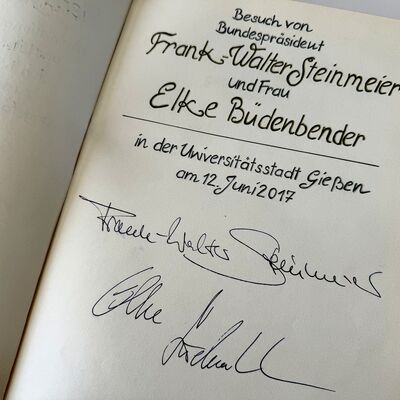 Besuch von
Bundespräsident
Frank-Walter Steinmeier
und Frau
Elke Büdenbender
in der Universitätsstadt Gießen
am 12. Juni 2017
Frank-Walter Steinmeier
Elke Büdenbender